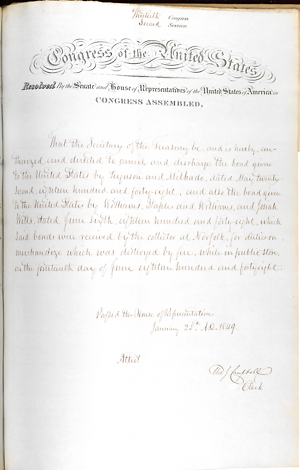 Thirtieth Congress
Second Session
Congress of the United States,
Resolved By the Senate and House of Representatives of the United States of America in
CONGRESS ASSEMBLED,
That the Secretary of the Treasury be, and is hereby, au-
thorized and directed to cancel and discharge the bond given
to the United States by and dated May twenty
second eighteen hundred and forty-eight, and also the bond given
to the United States by Williams, Staples and Williams, and Josiah
Wills, dated June sixth, eighteen hundred and forty-eight, which
said bonds were received by the collector at Norfolk, for duties on
merchandize which was destroyed by fire, while in public store,
on the fourteenth day of June eighteen hundred and forty eight.
Passed the House of Representatives
January 1849.
Attest
Tho J Campbell
Clerk